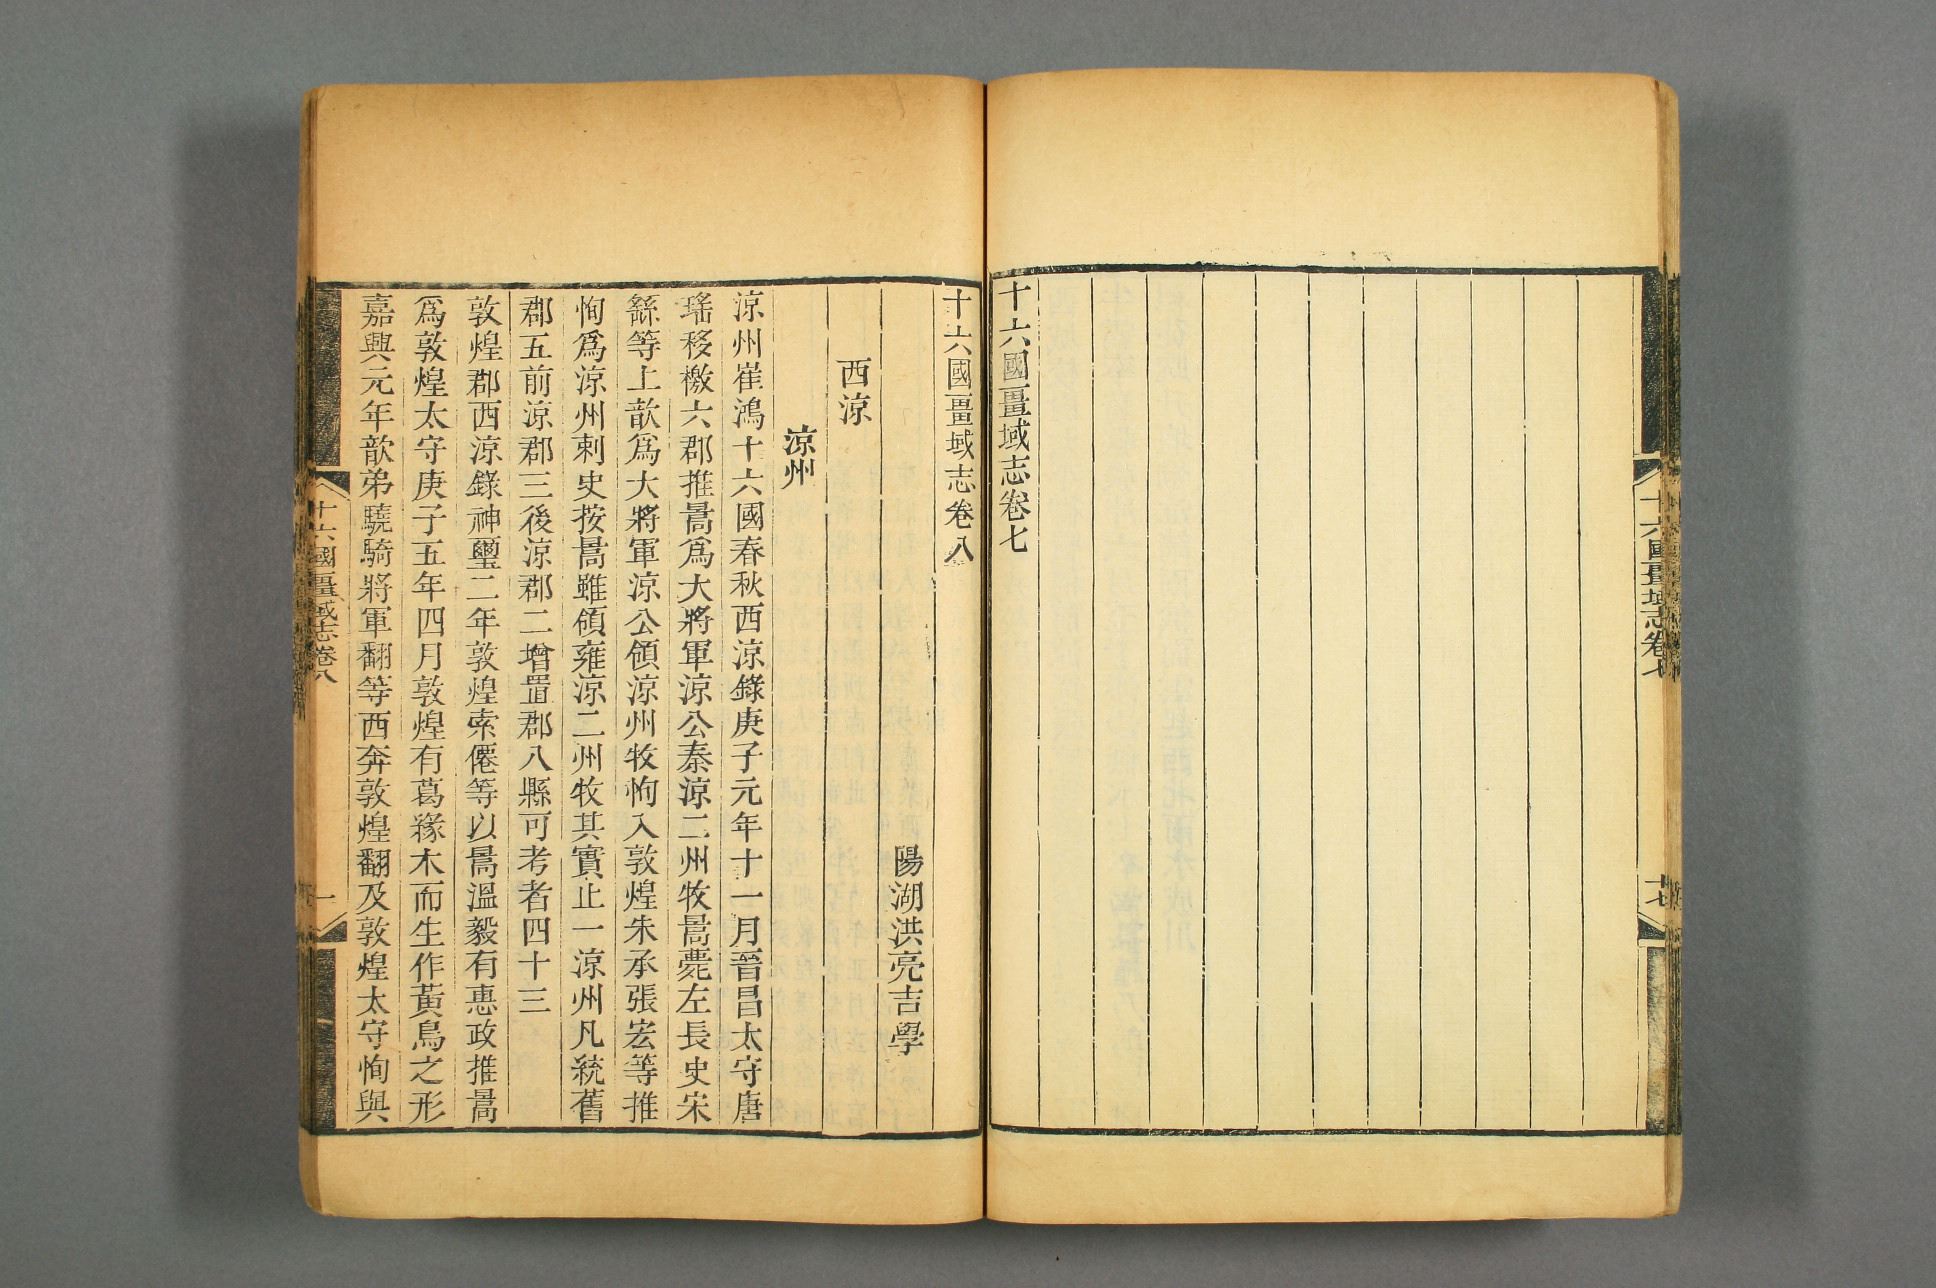 十六國疆域志卷七
十六國疆域志卷七
十七
十六國疆域志卷八
陽湖洪亮吉學
西涼
涼州
涼州崔鴻十六國春秋西涼錄庚子元年十一月晉昌太守唐
瑤移檄六郡推暠爲大將軍涼公秦涼二州牧暠薨左長史宋
繇等上歆爲大將軍涼公領涼州牧恂入敦煌朱承張宏等推
恂爲涼州刺史按暠雖領雍涼二州牧其實止一涼州凡統舊
郡五前涼郡三後涼郡二增置郡八縣可考者四十三
敦煌郡西涼錄神璽二年敦煌索僊等以暠溫毅有惠政推暠
爲敦煌太守庚子五年四月敦煌有葛緣木而生作黃鳥之形
嘉興元年歆弟驍騎將軍翻等西奔敦煌翻及敦煌太守恂與
十六國疆域志卷八
一